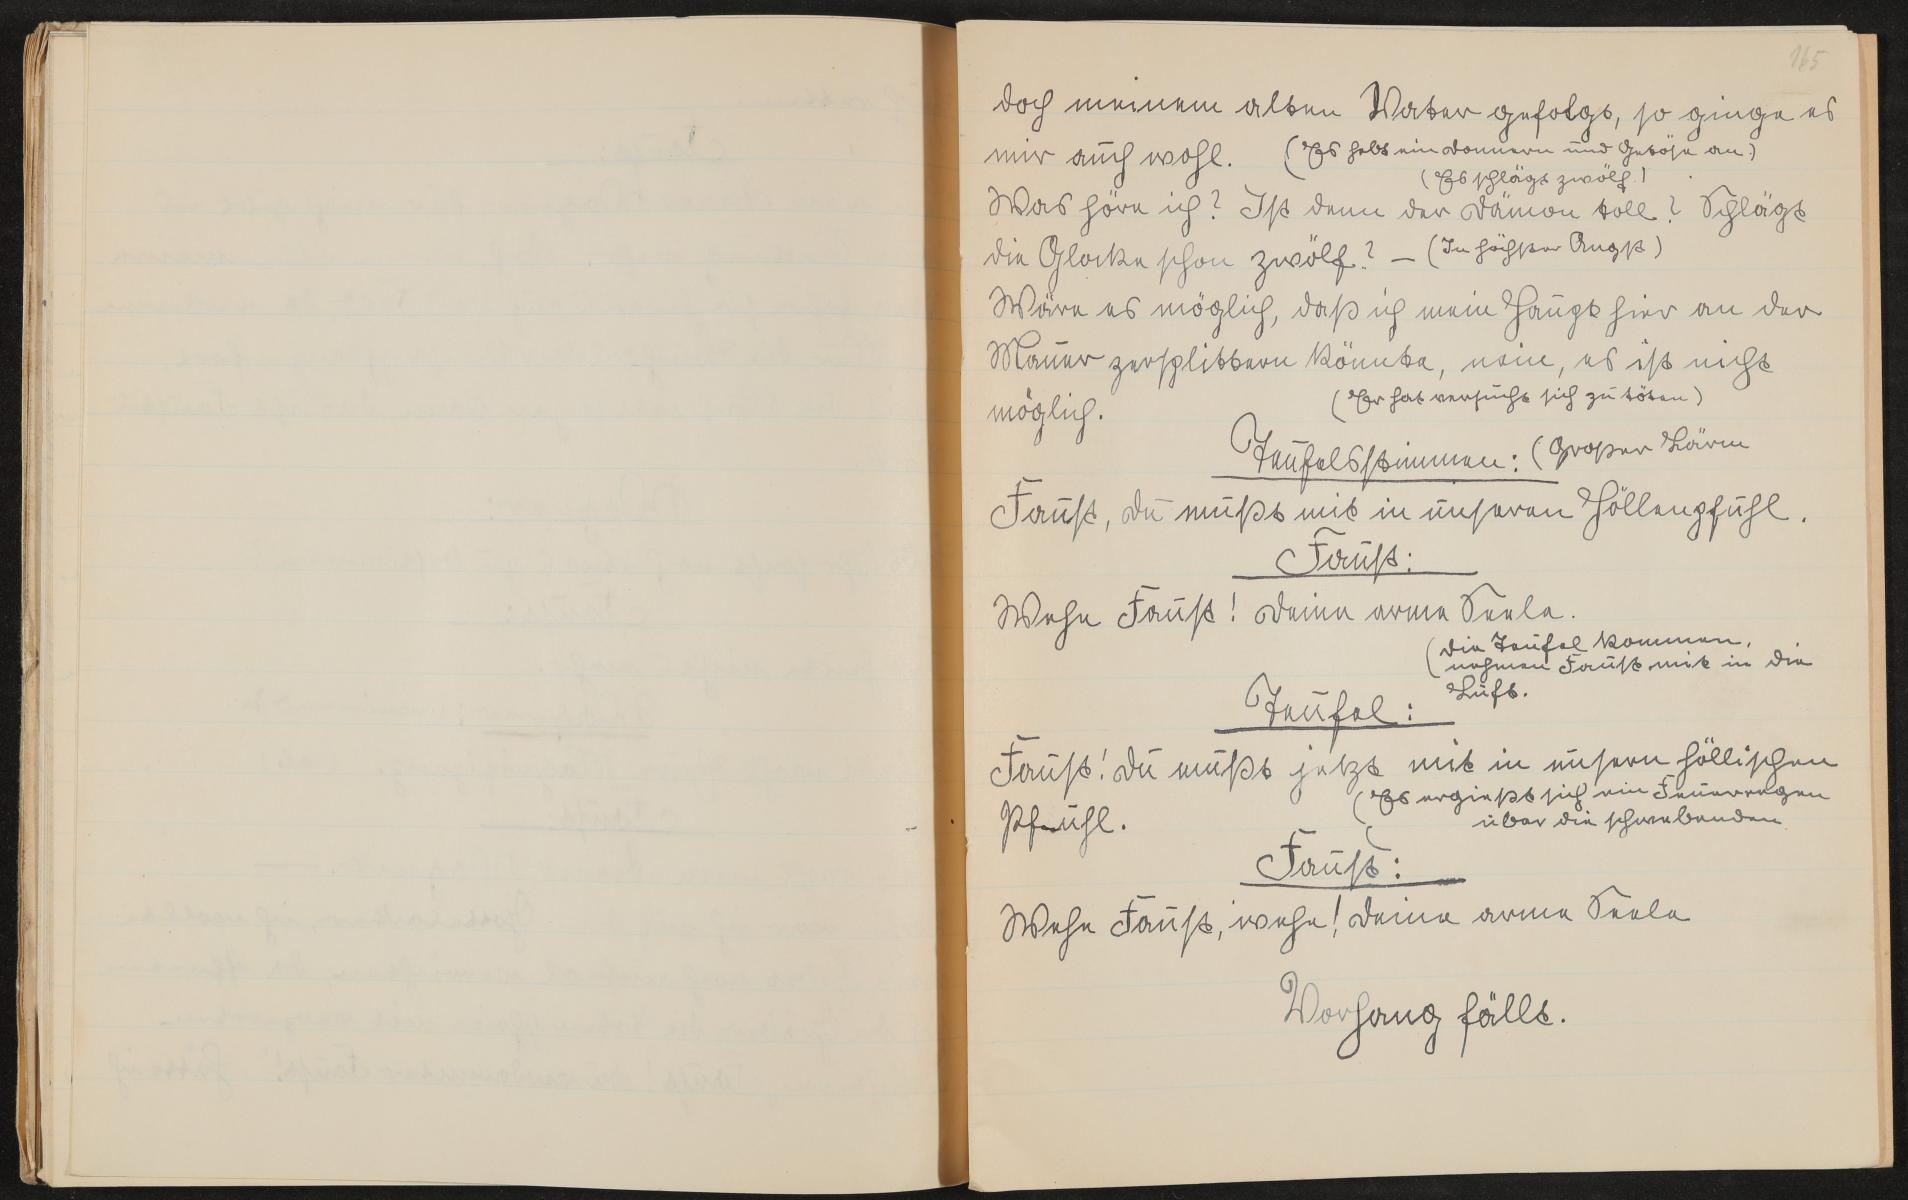 165
doch meinem alten Vater gefolgt, so ginge es
mir auch wohl. (Es hebt ein Donnern und Getöse an)
(Es schlägt zwölf!)
Was höre ich? Ist denn der Dämon toll? Schlägt
die Glocke schon zwölf? – (In höchster Angst)
Wäre es möglich, daß ich mein Haupt hier an der
Mauer zersplittern könnte, nein, es ist nicht
möglich. (Er hat versucht sich zu töten)
Teufelsstimmen: (Großer Lärm
Faust, du mußt mit in unseren Höllenpfuhl.
Faust:
Wehe Faust! Deine arme Seele.
(Die Teufel kommen,
nehmen Faust mit in die
Luft.
Teufel:
Faust! Du mußt jetzt mit in unsern höllischen
Pfuhl. (Es ergießt sich ein Feuerregen
über die schwebenden
Faust:
Wehe Faust, wehe! Deine arme Seele
Vorhang fällt.